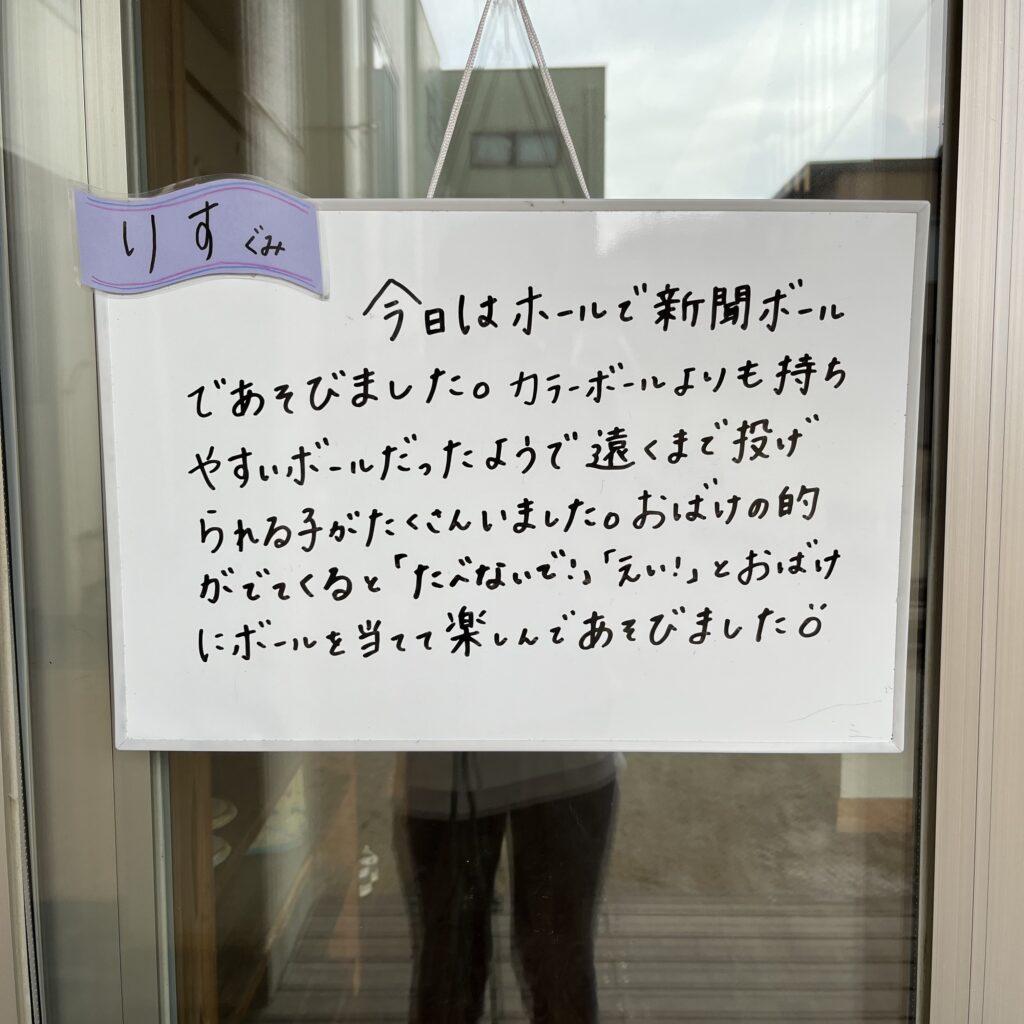 りすぐみ
今日はホールで新聞ボール
であそびました。カラーボールよりも持ち
やすいボールだったようで遠くまで投げ
られる子がたくさんいました。おばけの的
がでてくると「たべないで!」「えい!」とおばけ
にボールを当てて楽しんであそびました